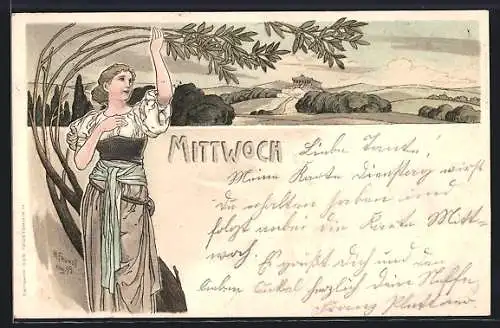 MITTWOCH
Liebe Tante!
Meine Karte Dienstag wirst
Du erhalten haben und
folgt anbei die Karte Mitt-
woch. Es grüßt Dich und den
lieben Onkel herzlich Dein Neffe
Franz